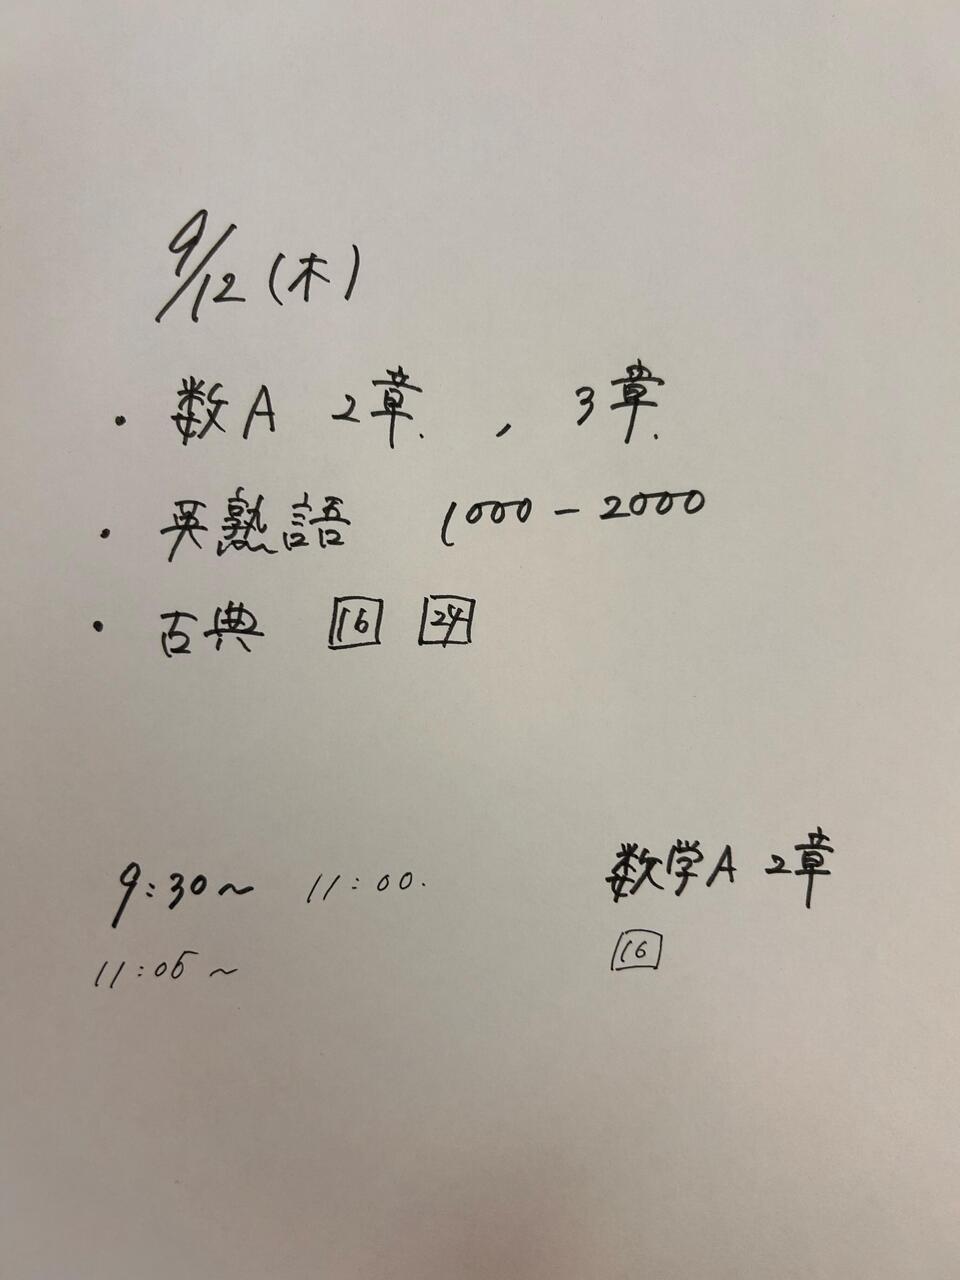 9/12 (木)
・ 数A 2章. , 3章.
・ 英熟語 1000 - 2000
・ 古典 16 24
9:30~ 11:00. 数学A 2章
11:05~ 16